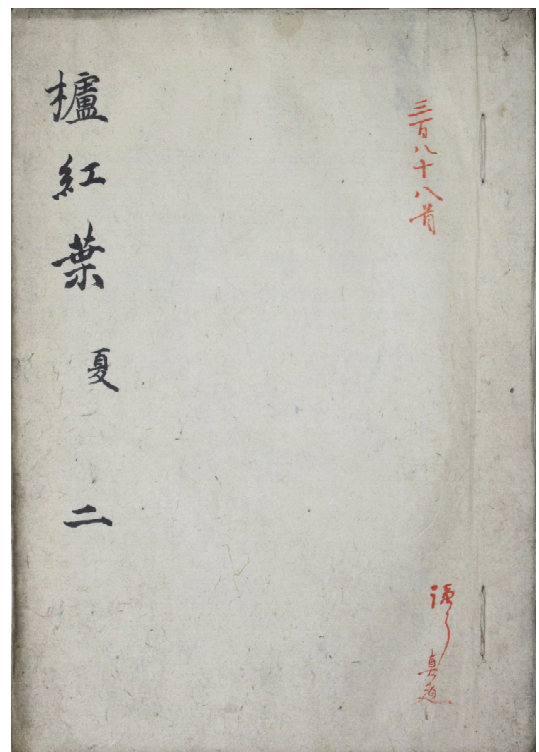 三百八十八首
真道
櫨紅葉 夏 二